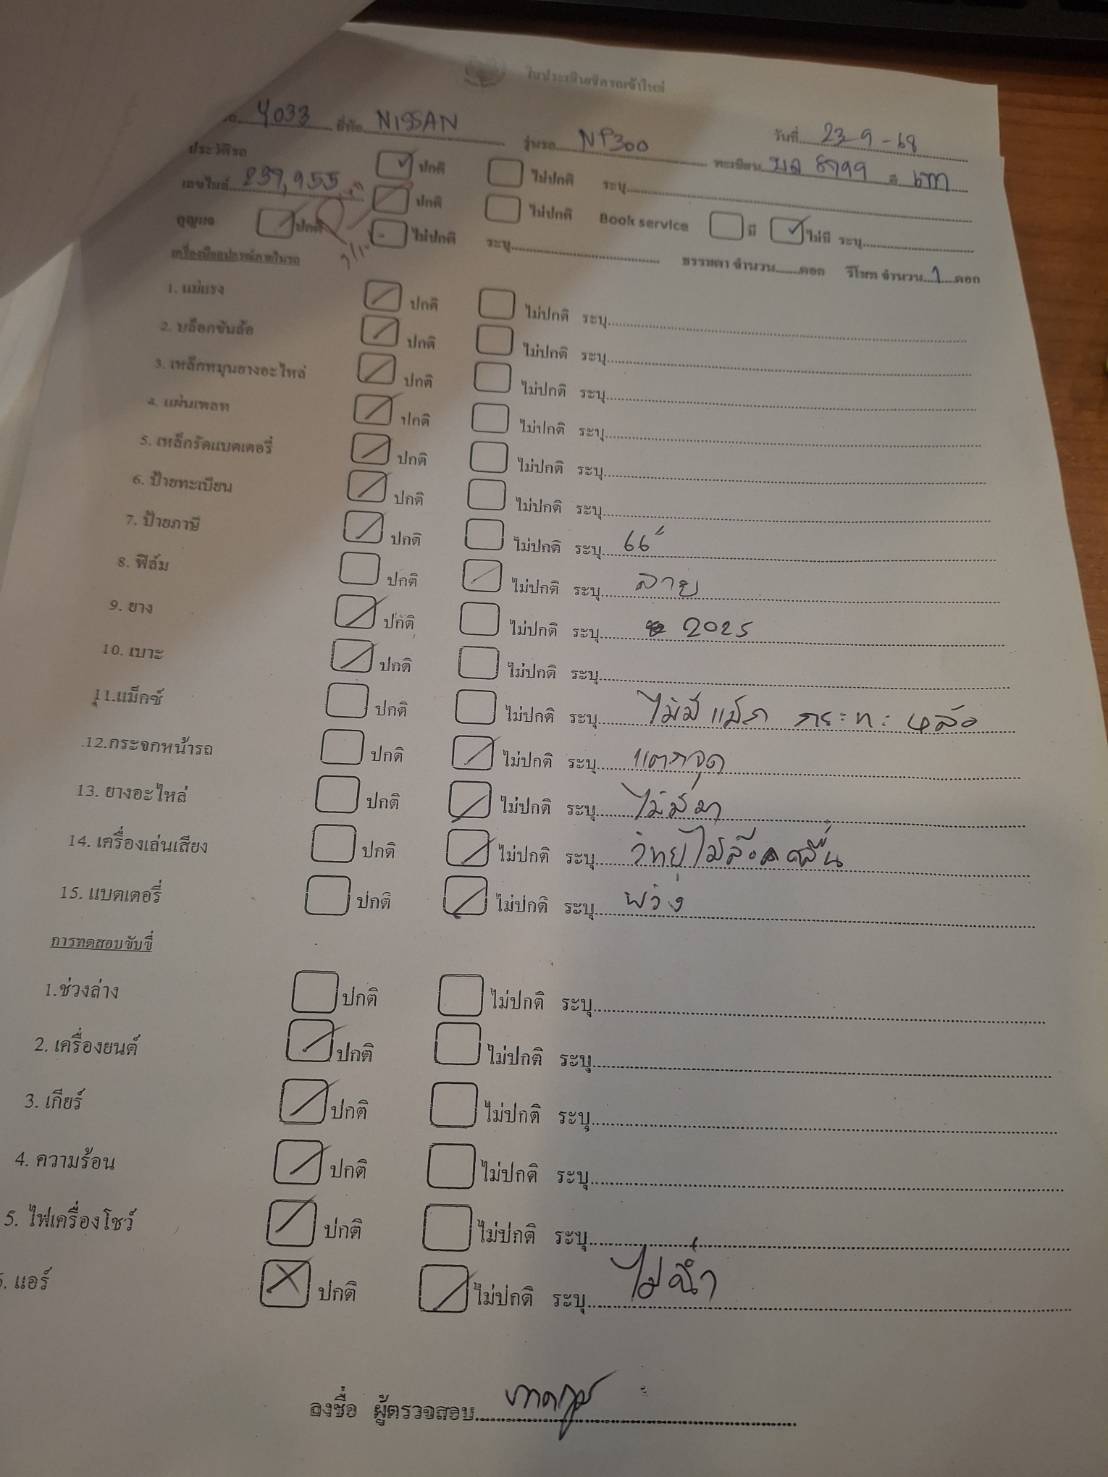 ใบประเมินสภาพรถเข้าใหม่
4033 ยี่ห้อ NISSAN รุ่นรถ NP300 วันที่ 23-9-68
ประวัติรถ ปกติ ไม่ปกติ ระบุ ทะเบียน 8799
เลขไมล์ 239,955 ปกติ ไม่ปกติ Book service มี ไม่มี ระบุ
กุญแจ ปกติ ไม่ปกติ ระบุ ธรรมดา จำนวน ดอก รีโมท จำนวน 1 ดอก
เครื่องมืออุปกรณ์ภายในรถ
1. แม่แรง ปกติ ไม่ปกติ ระบุ
2. บล็อกขันล้อ ปกติ ไม่ปกติ ระบุ
3. เหล็กหมุนยางอะไหล่ ปกติ ไม่ปกติ ระบุ
4. แผ่นเพลท ปกติ ไม่ปกติ ระบุ
5. เหล็กรัดแบตเตอรี่ ปกติ ไม่ปกติ ระบุ
6. ป้ายทะเบียน ปกติ ไม่ปกติ ระบุ
7. ป้ายภาษี ปกติ ไม่ปกติ ระบุ 66
8. ฟิล์ม ปกติ ไม่ปกติ ระบุ ลาย
9. ยาง ปกติ ไม่ปกติ ระบุ 2025
10. เบาะ ปกติ ไม่ปกติ ระบุ
11.แม็กซ์ ปกติ ไม่ปกติ ระบุ ไม่มี แม็ก กระทะ หลัง
12.กระจกหน้ารถ ปกติ ไม่ปกติ ระบุ แตกจุด
13. ยางอะไหล่ ปกติ ไม่ปกติ ระบุ ไม่มีมา
14. เครื่องเล่นเสียง ปกติ ไม่ปกติ ระบุ วิทยุไม่ล๊อคคลื่น
15. แบตเตอรี่ ปกติ ไม่ปกติ ระบุ พ่วง
การทดสอบขับขี่
1.ช่วงล่าง ปกติ ไม่ปกติ ระบุ
2. เครื่องยนต์ ปกติ ไม่ปกติ ระบุ
3. เกียร์ ปกติ ไม่ปกติ ระบุ
4. ความร้อน ปกติ ไม่ปกติ ระบุ
5. ไฟเครื่องโชว์ ปกติ ไม่ปกติ ระบุ
. แอร์ ปกติ ไม่ปกติ ระบุ ไม่ฉ่ำ
ลงชื่อ ผู้ตรวจสอบ